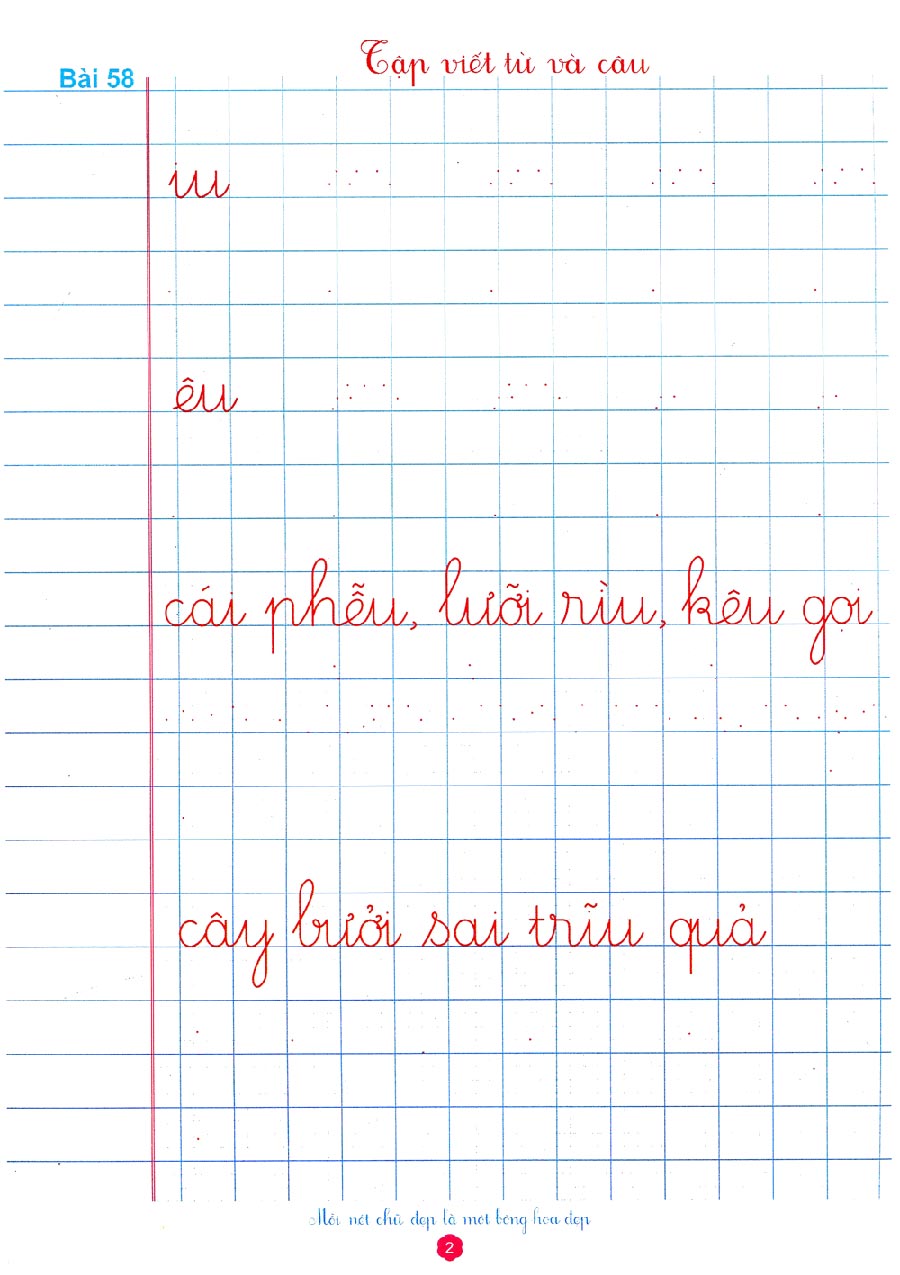 Tập viết từ và câu
Bài 58
iu
êu
cái phễu, lưỡi rìu, kêu gọi
cây bưởi sai trĩu quả
Mỗi nét chữ đẹp là một bông hoa đẹp
2